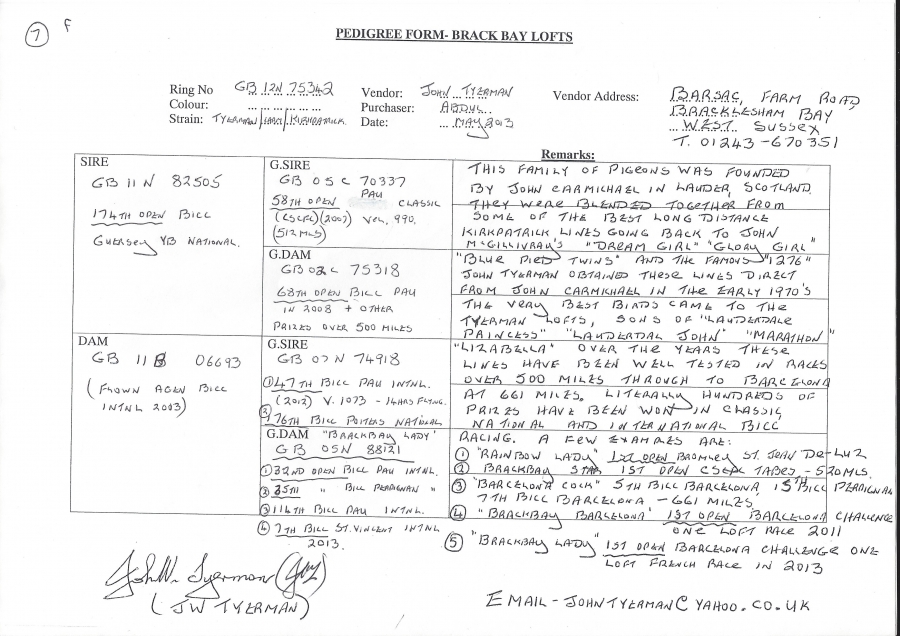 7 F
PEDIGREE FORM- BRACK BAY LOFTS
Ring No GB 12N 75342
Colour: ... ... ... ... ... ...
Strain: TYERMAN / / KIRKPATRICK.
Vendor: JOHN TYERMAN
Purchaser: ABDUL
Date: ... MAY 2013
Vendor Address: BARSAC, FARM ROAD,
BRACKLESHAM BAY
WEST SUSSEX
T. 01243-670351
SIRE
GB 11 N 82505
174TH OPEN BICC
GUERSEY YB NATIONAL.
G.SIRE
GB 05 C 70337
PAU
58TH OPEN CLASSIC
(2007) VEL. 990.
(512 MLS)
G.DAM
GB 02C 75318
68TH OPEN BICC PAU
IN 2008 + OTHER
PRIZES OVER 500 MILES
DAM
GB 11 B 06693
(FLOWN AGEN BICC
INTNL 2003)
G.SIRE
GB 07 N 74918
① 47TH BICC PAU INTNL.
(2012) V. 1073 - 14HRS FLYNG.
② 76TH BICC POITERS NATIONAL
G.DAM "BRACKBAY LADY"
GB 05N 88121
① 32ND OPEN BICC PAU INTNL.
② 35TH " BICC PERPIGNAN "
③ 114TH BICC PAU INTNL.
④ 7TH BICC ST. VINCENT INTNL
2013.
Remarks:
THIS FAMILY OF PIGEONS WAS FOUNDED
BY JOHN CARMICHAEL IN LAUDER, SCOTLAND,
THEY WERE BLENDED TOGETHER FROM
SOME OF THE BEST LONG DISTANCE
KIRKPATRICK LINES GOING BACK TO JOHN
McGILLIVRAY'S "DREAM GIRL" "GLORY GIRL"
"BLUE PIED TWINS" AND THE FAMOUS "1276"
JOHN TYERMAN OBTAINED THESE LINES DIRECT
FROM JOHN CARMICHAEL IN THE EARLY 1970'S
THE VERY BEST BIRDS CAME TO THE
TYERMAN LOFTS, SONS OF "LAUDERDALE
PRINCESS" "LAUDERDAL JOHN" "MARATHON"
"LIZABELLA" OVER THE YEARS THESE
LINES HAVE BEEN WELL TESTED IN RACES
OVER 500 MILES THROUGH TO BARCELONA
AT 661 MILES. LITERALLY HUNDREDS OF
PRIZES HAVE BEEN WON IN CLASSIC,
NATIONAL AND INTERNATIONAL BICC
RACING. A FEW EXAMPLES ARE:
① "RAINBOW LADY" 1ST OPEN BROMLEY ST. JOAN DE-LUZ
② BRACKBAY STAR 1ST OPEN TARBES - 520MLS.
③ "BARCELONA COCK" 5TH BICC BARCELONA 15TH BICC PERPIGNAN
7TH BICC BARCELONA - 661 MILES.
④ "BRACKBAY BARCELONA" 1ST OPEN BARCELONA CHALLENGE
ONE LOFT RACE 2011
⑤ "BRACKBAY LADY" 1ST OPEN BARCELONA CHALLENGE ONE
LOFT FRENCH RACE IN 2013
John W. Tyerman
(JW TYERMAN)
EMAIL - JOHNTYERMAN@YAHOO.CO.UK